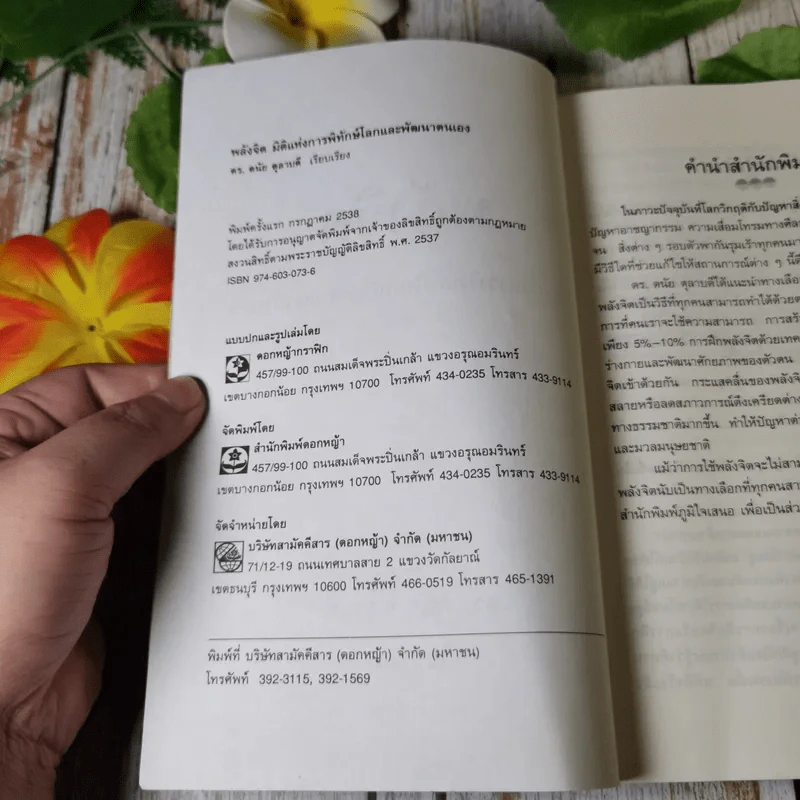 พลังจิต มิติแห่งการพิทักษ์โลกและพัฒนาตนเอง
ดร. ดนัย ตุลาบดี เรียบเรียง
พิมพ์ครั้งแรก กรกฎาคม 2538
โดยได้รับการอนุญาตจัดพิมพ์จากเจ้าของลิขสิทธิ์ถูกต้องตามกฎหมาย
สงวนสิทธิ์ตามพระราชบัญญัติลิขสิทธิ์ พ.ศ. 2537
ISBN 974-603-073-6
แบบปกและรูปเล่มโดย
ดอกหญ้ากราฟิก
457/99-100 ถนนสมเด็จพระปิ่นเกล้า แขวงอรุณอมรินทร์
เขตบางกอกน้อย กรุงเทพฯ 10700 โทรศัพท์ 434-0235 โทรสาร 433-9114
จัดพิมพ์โดย
สำนักพิมพ์ดอกหญ้า
457/99-100 ถนนสมเด็จพระปิ่นเกล้า แขวงอรุณอมรินทร์
เขตบางกอกน้อย กรุงเทพฯ 10700 โทรศัพท์ 434-0235 โทรสาร 433-9114
จัดจำหน่ายโดย
บริษัทสามัคคีสาร (ดอกหญ้า) จำกัด (มหาชน)
71/12-19 ถนนเทศบาลสาย 2 แขวงวัดกัลยาณ์
เขตธนบุรี กรุงเทพฯ 10600 โทรศัพท์ 466-0519 โทรสาร 465-1391
พิมพ์ที่ บริษัทสามัคคีสาร (ดอกหญ้า) จำกัด (มหาชน)
โทรศัพท์ 392-3115, 392-1569
คำนำสำนักพิม
ในภาวะปัจจุบันที่โลกวิกฤติกับปัญหาสิ่
ปัญหาอาชญากรรม ความเสื่อมโทรมทางศีล
จน สิ่งต่าง ๆ รอบตัวพากันรุมเร้าทุกคนมา
มีวิธีใดที่ช่วยแก้ไขให้สถานการณ์ต่าง ๆ นี้ดี
ดร. ดนัย ตุลาบดีได้แนะนำทางเลือ
พลังจิตเป็นวิธีที่ทุกคนสามารถทำได้ด้วยต
การที่คนเราจะใช้ความสามารถ การสร้
เพียง 5%–10% การฝึกพลังจิตด้วยเทค
ร่างกายและพัฒนาศักยภาพของตัวตน
จิตเข้าด้วยกัน กระแสคลื่นของพลังจิ
สลายหรือลดสภาวการณ์ตึงเครียดต่าง
ทางธรรมชาติมากขึ้น ทำให้ปัญหาต่
และมวลมนุษยชาติ
แม้ว่าการใช้พลังจิตจะไม่สาม
พลังจิตนับเป็นทางเลือกที่ทุกคนสา
สำนักพิมพ์ภูมิใจเสนอ เพื่อเป็นส่ว